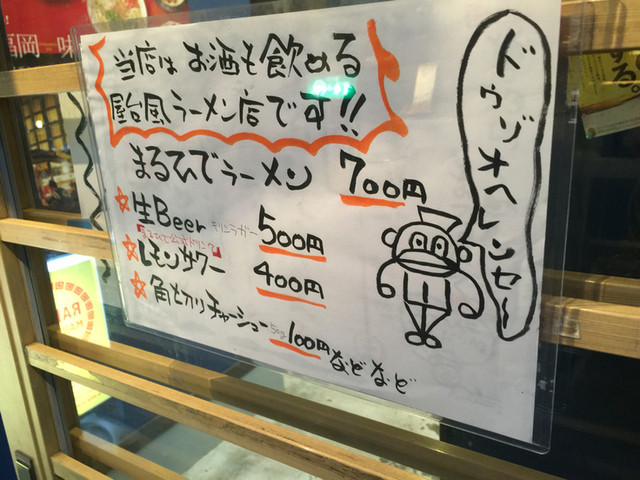 当店は お酒も飲める
屋台風ラーメン店です!!
まるひでラーメン 700円
☆生Beer キリンラガー 500円
【まるひで公式ドリンク】
☆レモンサワー 400円
☆角切りチャーシュー 50g 100円 などなど
ドウゾオヘレンセ〜
福岡一
RA